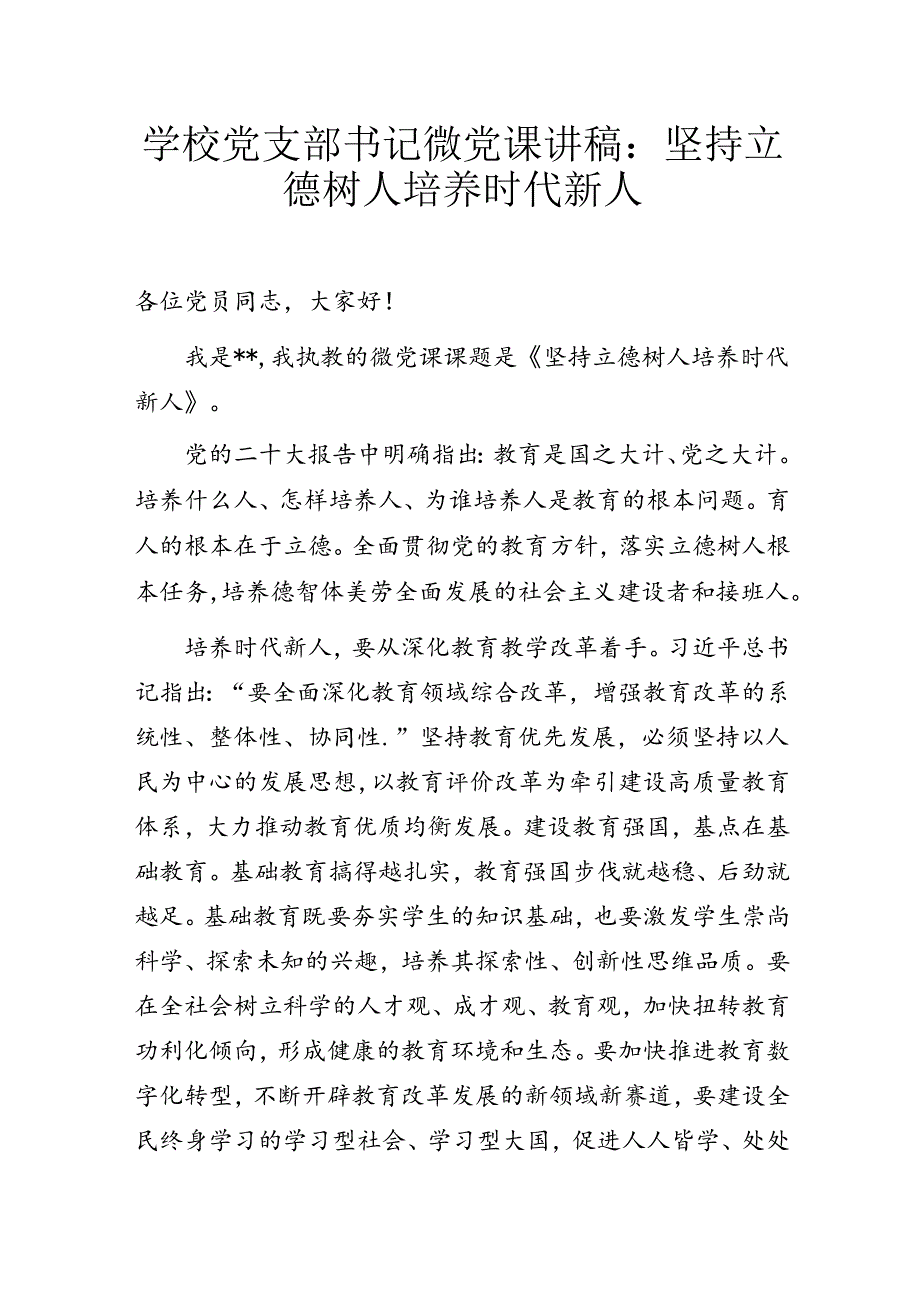 学校党支部书记微党课讲稿：坚持立
德树人培养时代新人
各位党员同志，大家好！
我是**,我执教的微党课课题是《坚持立德树人培养时代
新人》。
党的二十大报告中明确指出:教育是国之大计、党之大计。
培养什么人、怎样培养人、为谁培养人是教育的根本问题。育
人的根本在于立德。全面贯彻党的教育方针，落实立德树人根
本任务,培养德智体美劳全面发展的社会主义建设者和接班人。
培养时代新人，要从深化教育教学改革着手。习近平总书
记指出:“要全面深化教育领域综合改革，增强教育改革的系
统性、整体性、协同性.”坚持教育优先发展，必须坚持以人
民为中心的发展思想,以教育评价改革为牵引建设高质量教育
体系，大力推动教育优质均衡发展。建设教育强国，基点在基
础教育。基础教育搞得越扎实，教育强国步伐就越稳、后劲就
越足。基础教育既要夯实学生的知识基础，也要激发学生崇尚
科学、探索未知的兴趣，培养其探索性、创新性思维品质。要
在全社会树立科学的人才观、成才观、教育观，加快扭转教育
功利化倾向,形成健康的教育环境和生态。要加快推进教育数
字化转型，不断开辟教育改革发展的新领域新赛道，要建设全
民终身学习的学习型社会、学习型大国，促进人人皆学、处处